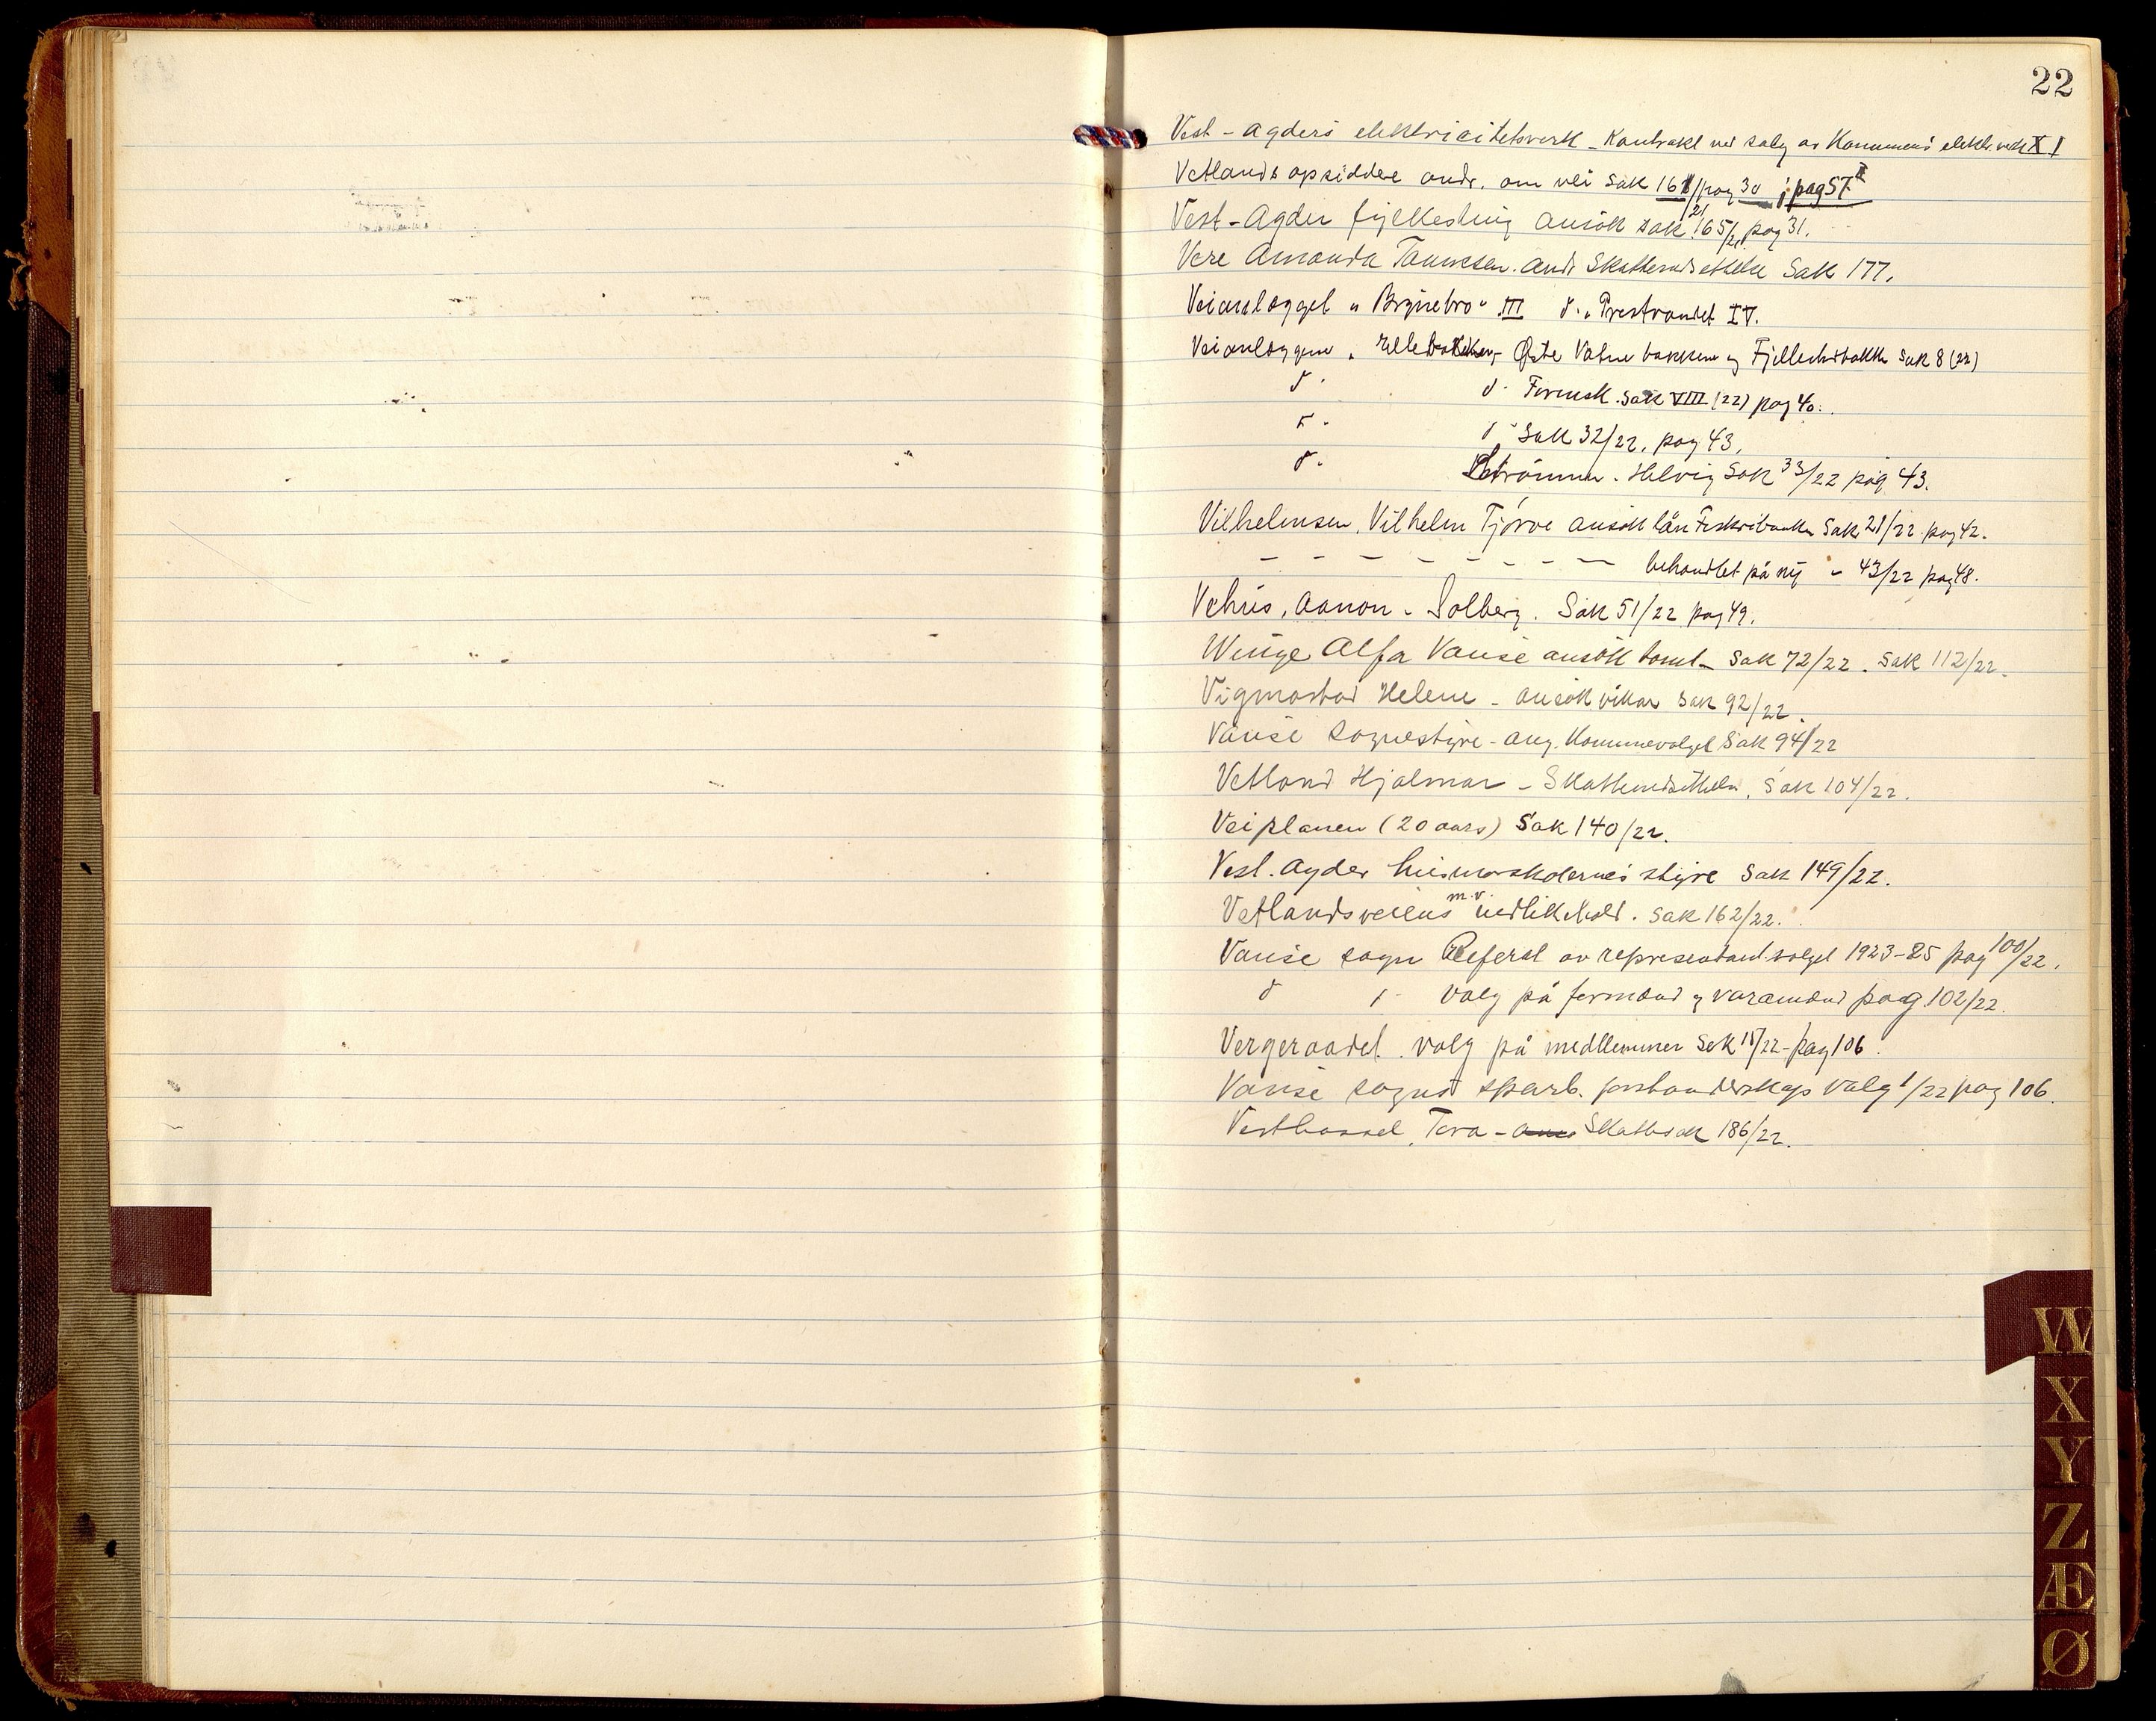 22
Vest-Agders elektricitetsverk - Kontrakt ved salg av Kommunens elektr. verk XI
Vetlands opsiddere andr. om vei Sak 161/21 pag 30 ; pag 57 II
Vest-Agder fylkesting ansök sak 165/21 pag 31.
Vere Amanda Tønnesen. Andr Skattenedsettelse Sak 177.
Veianlægget " Brynebro " III d. " Prestvandet IV.
Veianlæggene " Ellebakken, Øste Vatne bakkene og Fjellestadbakken Sak 8 (22)
d. d. Forensk. sak VIII (22) pag 40.
d. d. Sak 32/22. pag 43.
d. Strömmen - Helvig Sak 33/22 pag 43.
Vilhelmsen, Vilhelm Tjörve ansök lån Fiskeribanken Sak 21/22 pag 42.
— — — — — — — — behandlet på ny " 43/22 pag 48.
Vehus, Aanon - Solberg. Sak 51/22 pag 49.
Winge Alfa Vanse ansök tomt - Sak 72/22. Sak 112/22.
Vigmostad Helene - ansök vikar Sak 92/22.
Vanse sognestyre - ang. Kommunevalget Sak 94/22
Vetland Hjalmar - Skattenedsettelse, Sak 104/22.
Veiplanen (20 aars) Sak 140/22.
Vest. Agder husmorskolernes styre Sak 149/22.
Vetlandsveiens m.v. vedlikehold. Sak 162/22.
Vanse sogn Referat av representantvalget 1923-25 pag 100/22.
d d valg på formand og varamand pag 102/22.
Vergeraadet. valg på medlemmer Sak 18/22 - pag 106.
Vanse sogns sparb. forstanderskaps valg 1/22 pag 106.
Vesthassel, Tora - Skattesak 186/22.
W
X
Y
Z
Æ
Ø